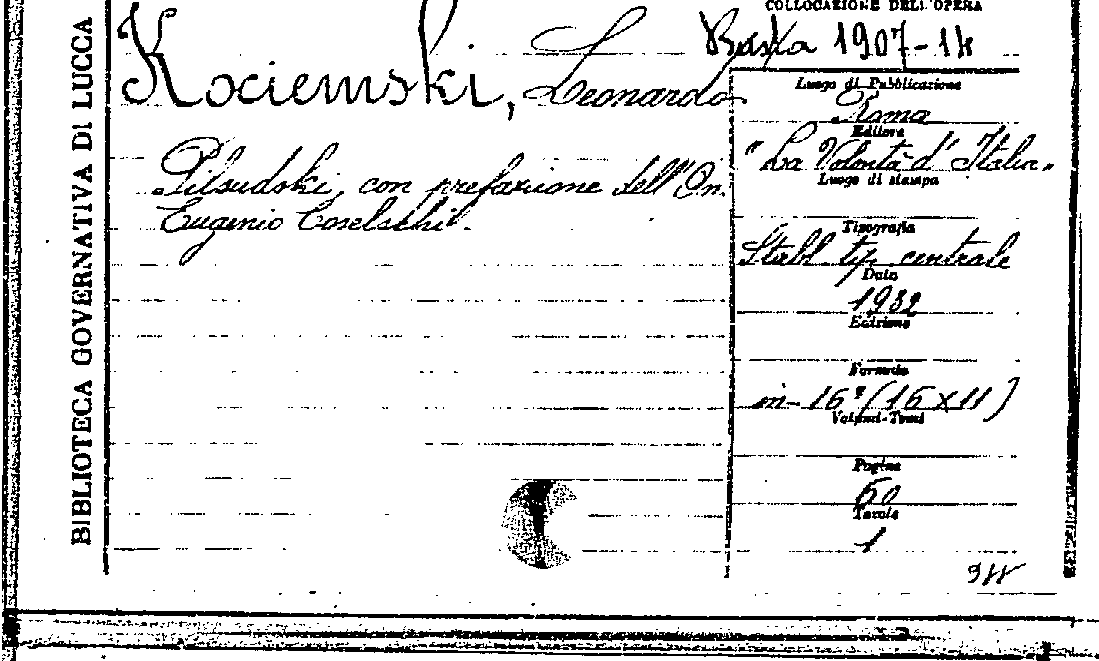 BIBLIOTECA GOVERNATIVA DI LUCCA
COLLOCAZIONE DELL'OPERA
Busta 1907-14
Kociemski, Leonardo
Pilsudski, con prefazione dell'On.
Eugenio Coselschi.
Luogo di Pubblicazione
Roma
Editore
"La Volontà d'Italia"
Luogo di stampa
Tipografia
Stabl. tip. centrale
Data
1932
Edizione
Formato
in-16° (16 x 11)
Volumi-Tomi
Pagine
60
Tavole
1